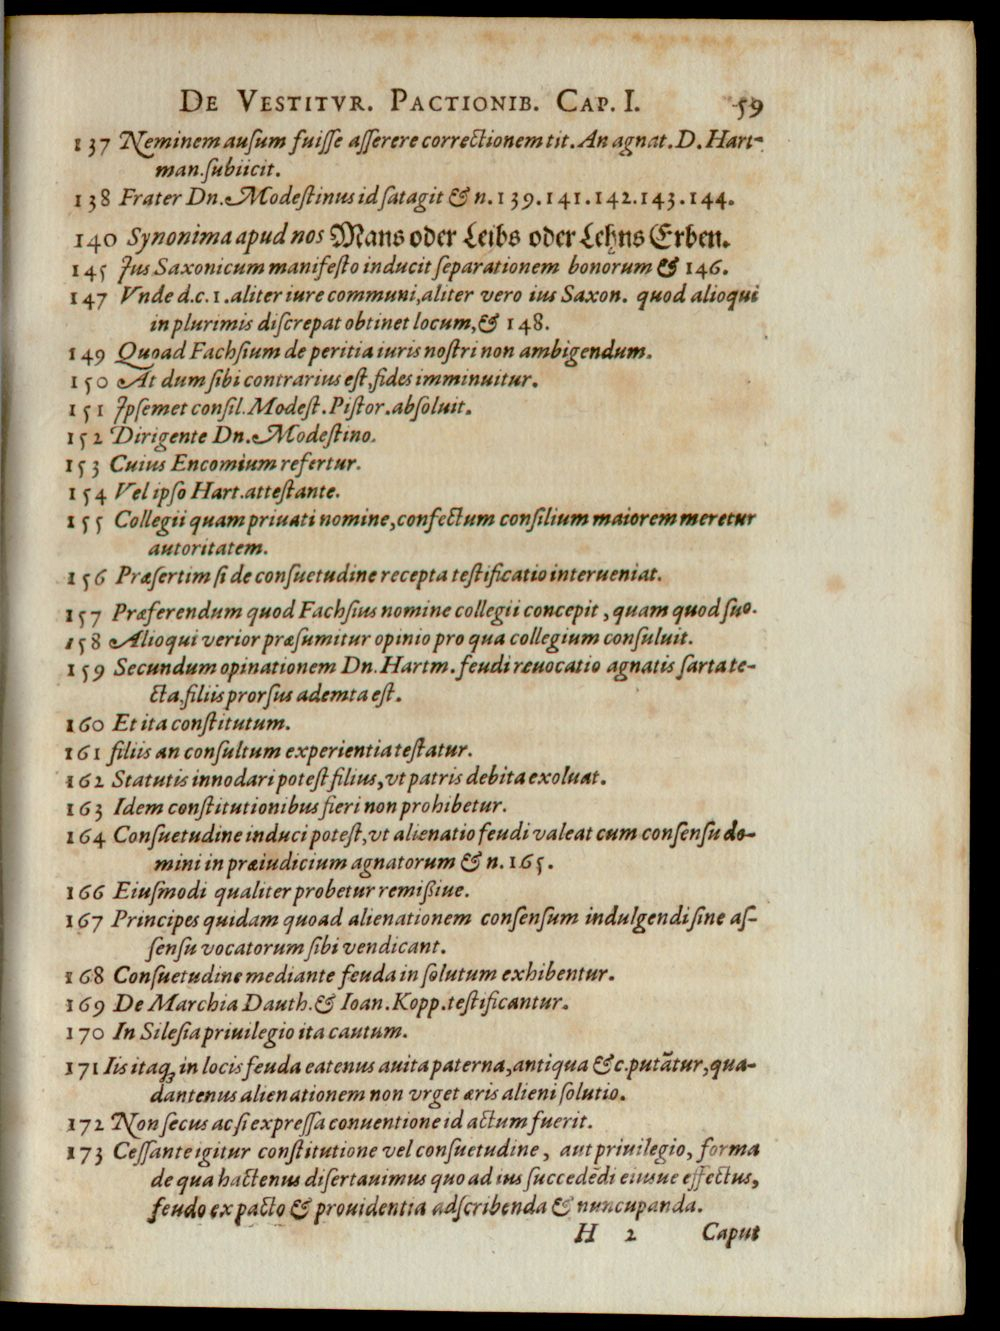 DE VESTITVR. PACTIONIB. CAP. I. 59
137 Neminem ausum fuisse asserere correctionem tit. An agnat. D. Hart-
man. subiicit.
138 Frater Dn. Modestinus id satagit & n. 139. 141. 142. 143. 144.
140 Synonima apud nos Mans oder Leibs oder Lehns Erben.
145 Jus Saxonicum manifesto inducit separationem bonorum & 146.
147 Vnde d. c. 1. aliter iure communi, aliter vero ius Saxon. quod alioqui
in plurimis discrepat obtinet locum, & 148.
149 Quoad Fachsium de peritia iuris nostri non ambigendum.
150 At dum sibi contrarius est, fides imminuitur.
151 Jpsemet consil. Modest. Pistor. absoluit.
152 Dirigente Dn. Modestino.
153 Cuius Encomium refertur.
154 Vel ipso Hart. attestante.
155 Collegii quam priuati nomine, confectum consilium maiorem meretur
autoritatem.
156 Præsertim si de consuetudine recepta testificatio interueniat.
157 Præferendum quod Fachsius nomine collegii concepit, quam quod suo.
158 Alioqui verior præsumitur opinio pro qua collegium consuluit.
159 Secundum opinationem Dn. Hartm. feudi reuocatio agnatis sarta te-
cta, filiis prorsus ademta est.
160 Et ita constitutum.
161 filiis an consultum experientia testatur.
162 Statutis innodari potest filius, vt patris debita exoluat.
163 Idem constitutionibus fieri non prohibetur.
164 Consuetudine induci potest, vt alienatio feudi valeat cum consensu do-
mini in præiudicium agnatorum & n. 165.
166 Eiusmodi qualiter probetur remißiue.
167 Principes quidam quoad alienationem consensum indulgendi sine as-
sensu vocatorum sibi vendicant.
168 Consuetudine mediante feuda in solutum exhibentur.
169 De Marchia Dauth. & Ioan. Kopp. testificantur.
170 In Silesia priuilegio ita cautum.
171 Iis itaq; in locis feuda eatenus auita paterna, antiqua &c. putãtur, qua-
dantenus alienationem non vrget æris alieni solutio.
172 Non secus ac si expressa conuentione id actum fuerit.
173 Cessante igitur constitutione vel consuetudine, aut priuilegio, forma
de qua hactenus disertauimus quo ad ius succedēdi eiusue effectus,
feudo ex pacto & prouidentia adscribenda & nuncupanda.
H 2 Caput